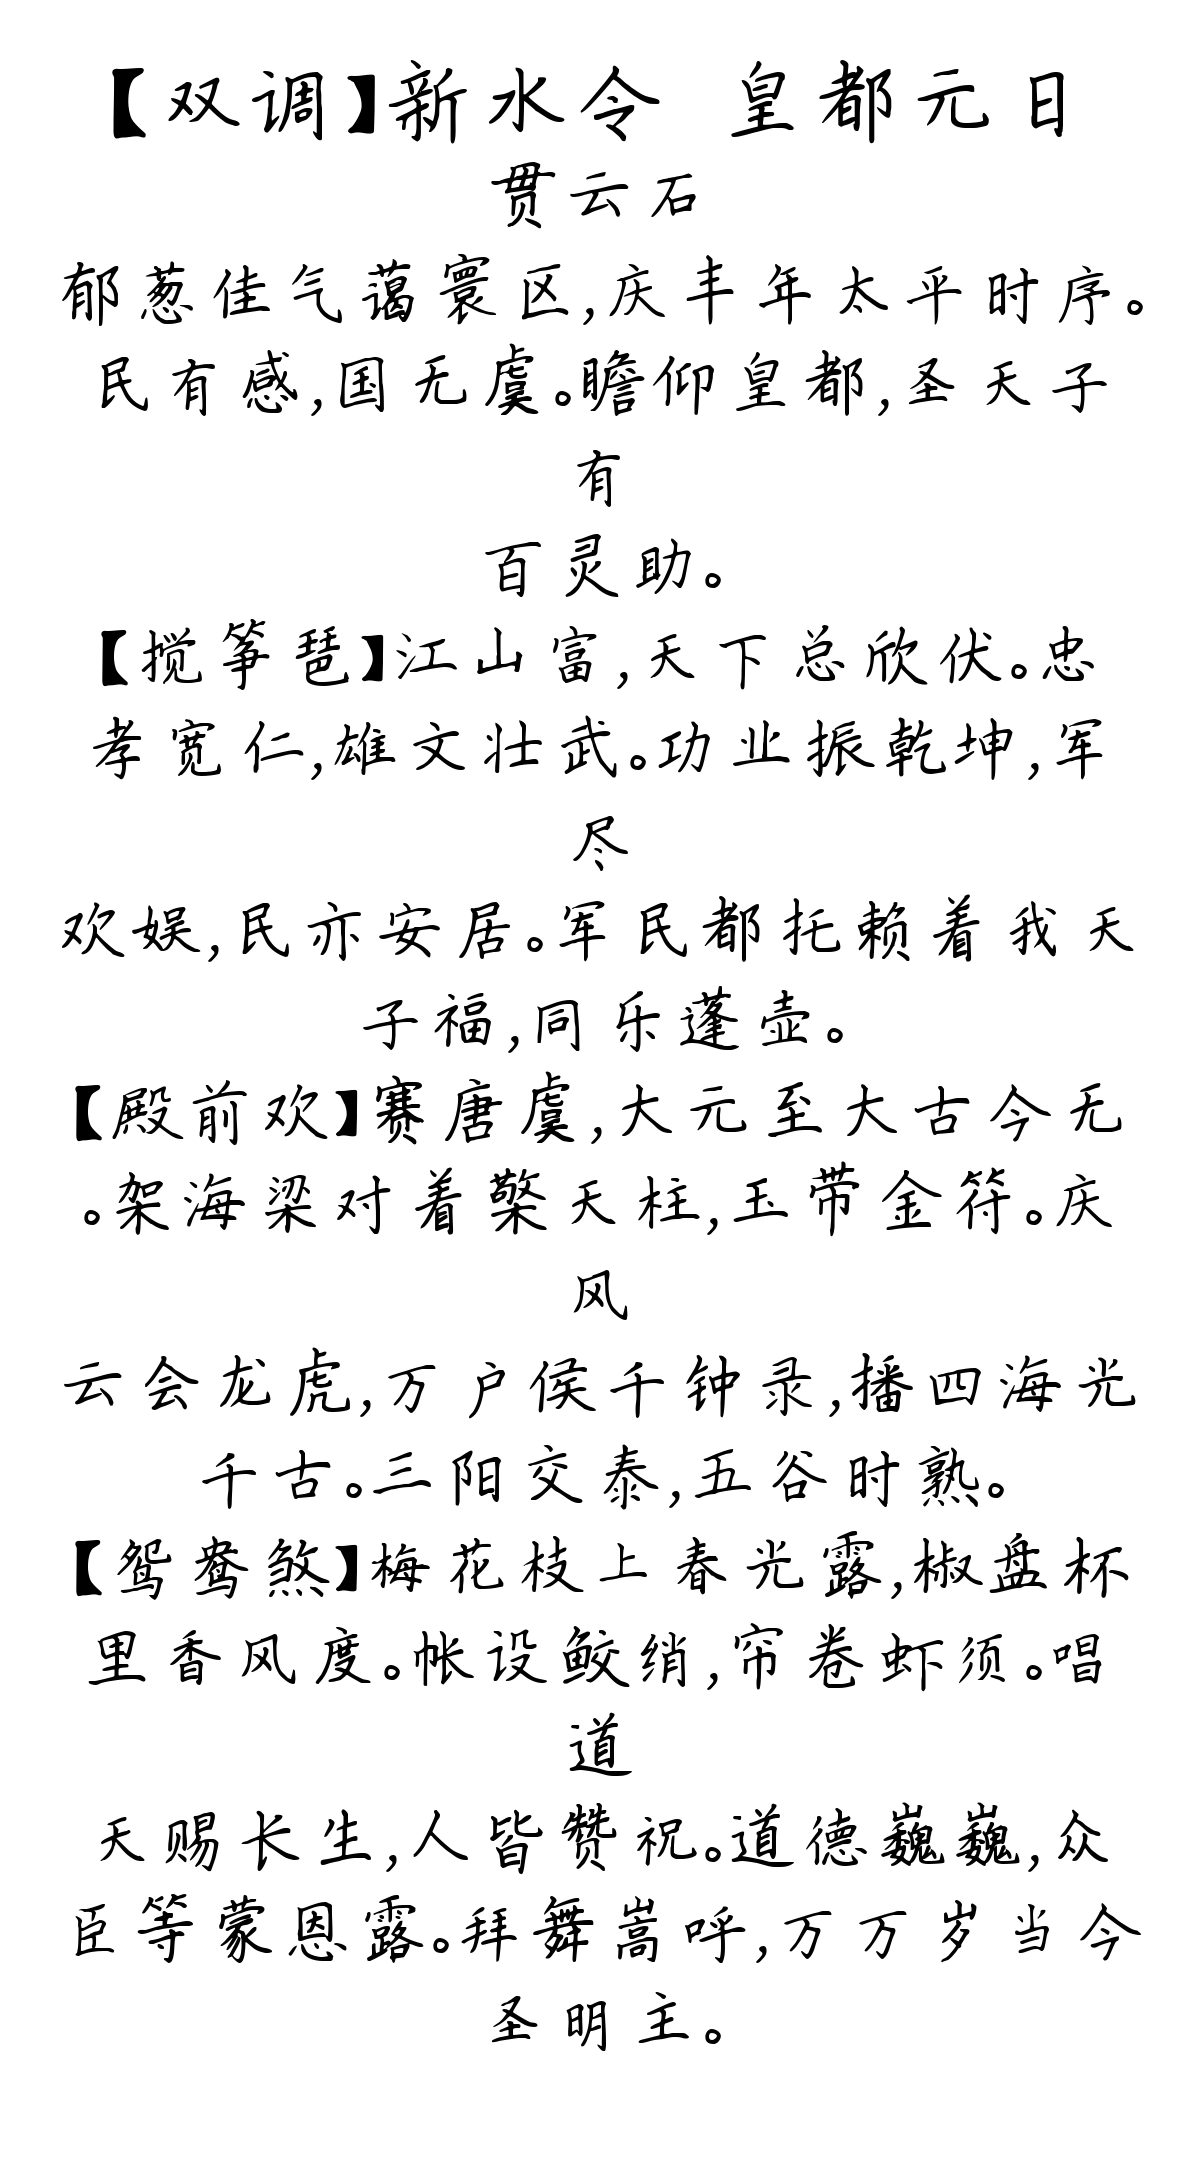 【双调】新水令 皇都元日
贯云石
郁葱佳气蔼寰区,庆丰年太平时序。
民有感,国无虞。瞻仰皇都,圣天子
有
百灵助。
【搅筝琶】江山富,天下总欣伏。忠
孝宽仁,雄文壮武。功业振乾坤,军
尽
欢娱,民亦安居。军民都托赖着我天
子福,同乐蓬壶。
【殿前欢】赛唐虞,大元至大古今无
。架海梁对着檠天柱,玉带金符。庆
风
云会龙虎,万户侯千钟录,播四海光
千古。三阳交泰,五谷时熟。
【鸳鸯煞】梅花枝上春光露,椒盘杯
里香风度。帐设鲛绡,帘卷虾须。唱
道
天赐长生,人皆赞祝。道德巍巍,众
臣等蒙恩露。拜舞嵩呼,万万岁当今
圣明主。